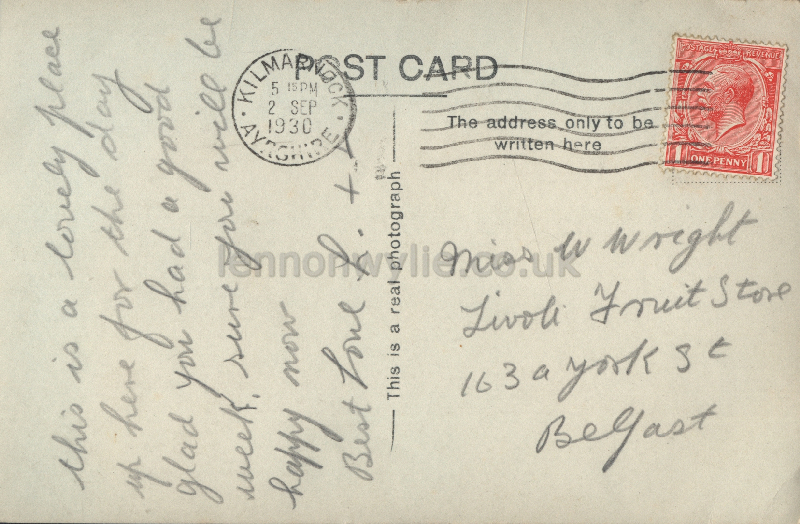 this is a lovely place
up here for the day
glad you had a good
week, sure you will be
happy now
Best Love L. + L
POST CARD
KILMARNOCK
5 15PM
2 SEP
1930
AYRSHIRE
The address only to be
written here
POSTAGE REVENUE
1 ONE PENNY 1
This is a real photograph
lennonwylie.co.uk
Miss W Wright
Tivoli Fruit Store
163a York St
Belfast